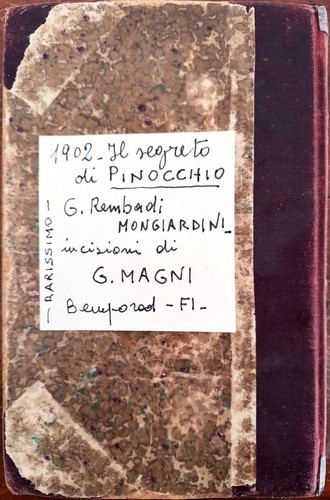 1902_Il segreto
di PINOCCHIO
G. Rembadi
MONGIARDINI_
incisioni di
G. MAGNI
Bemporad - FI -
- RARISSIMO -